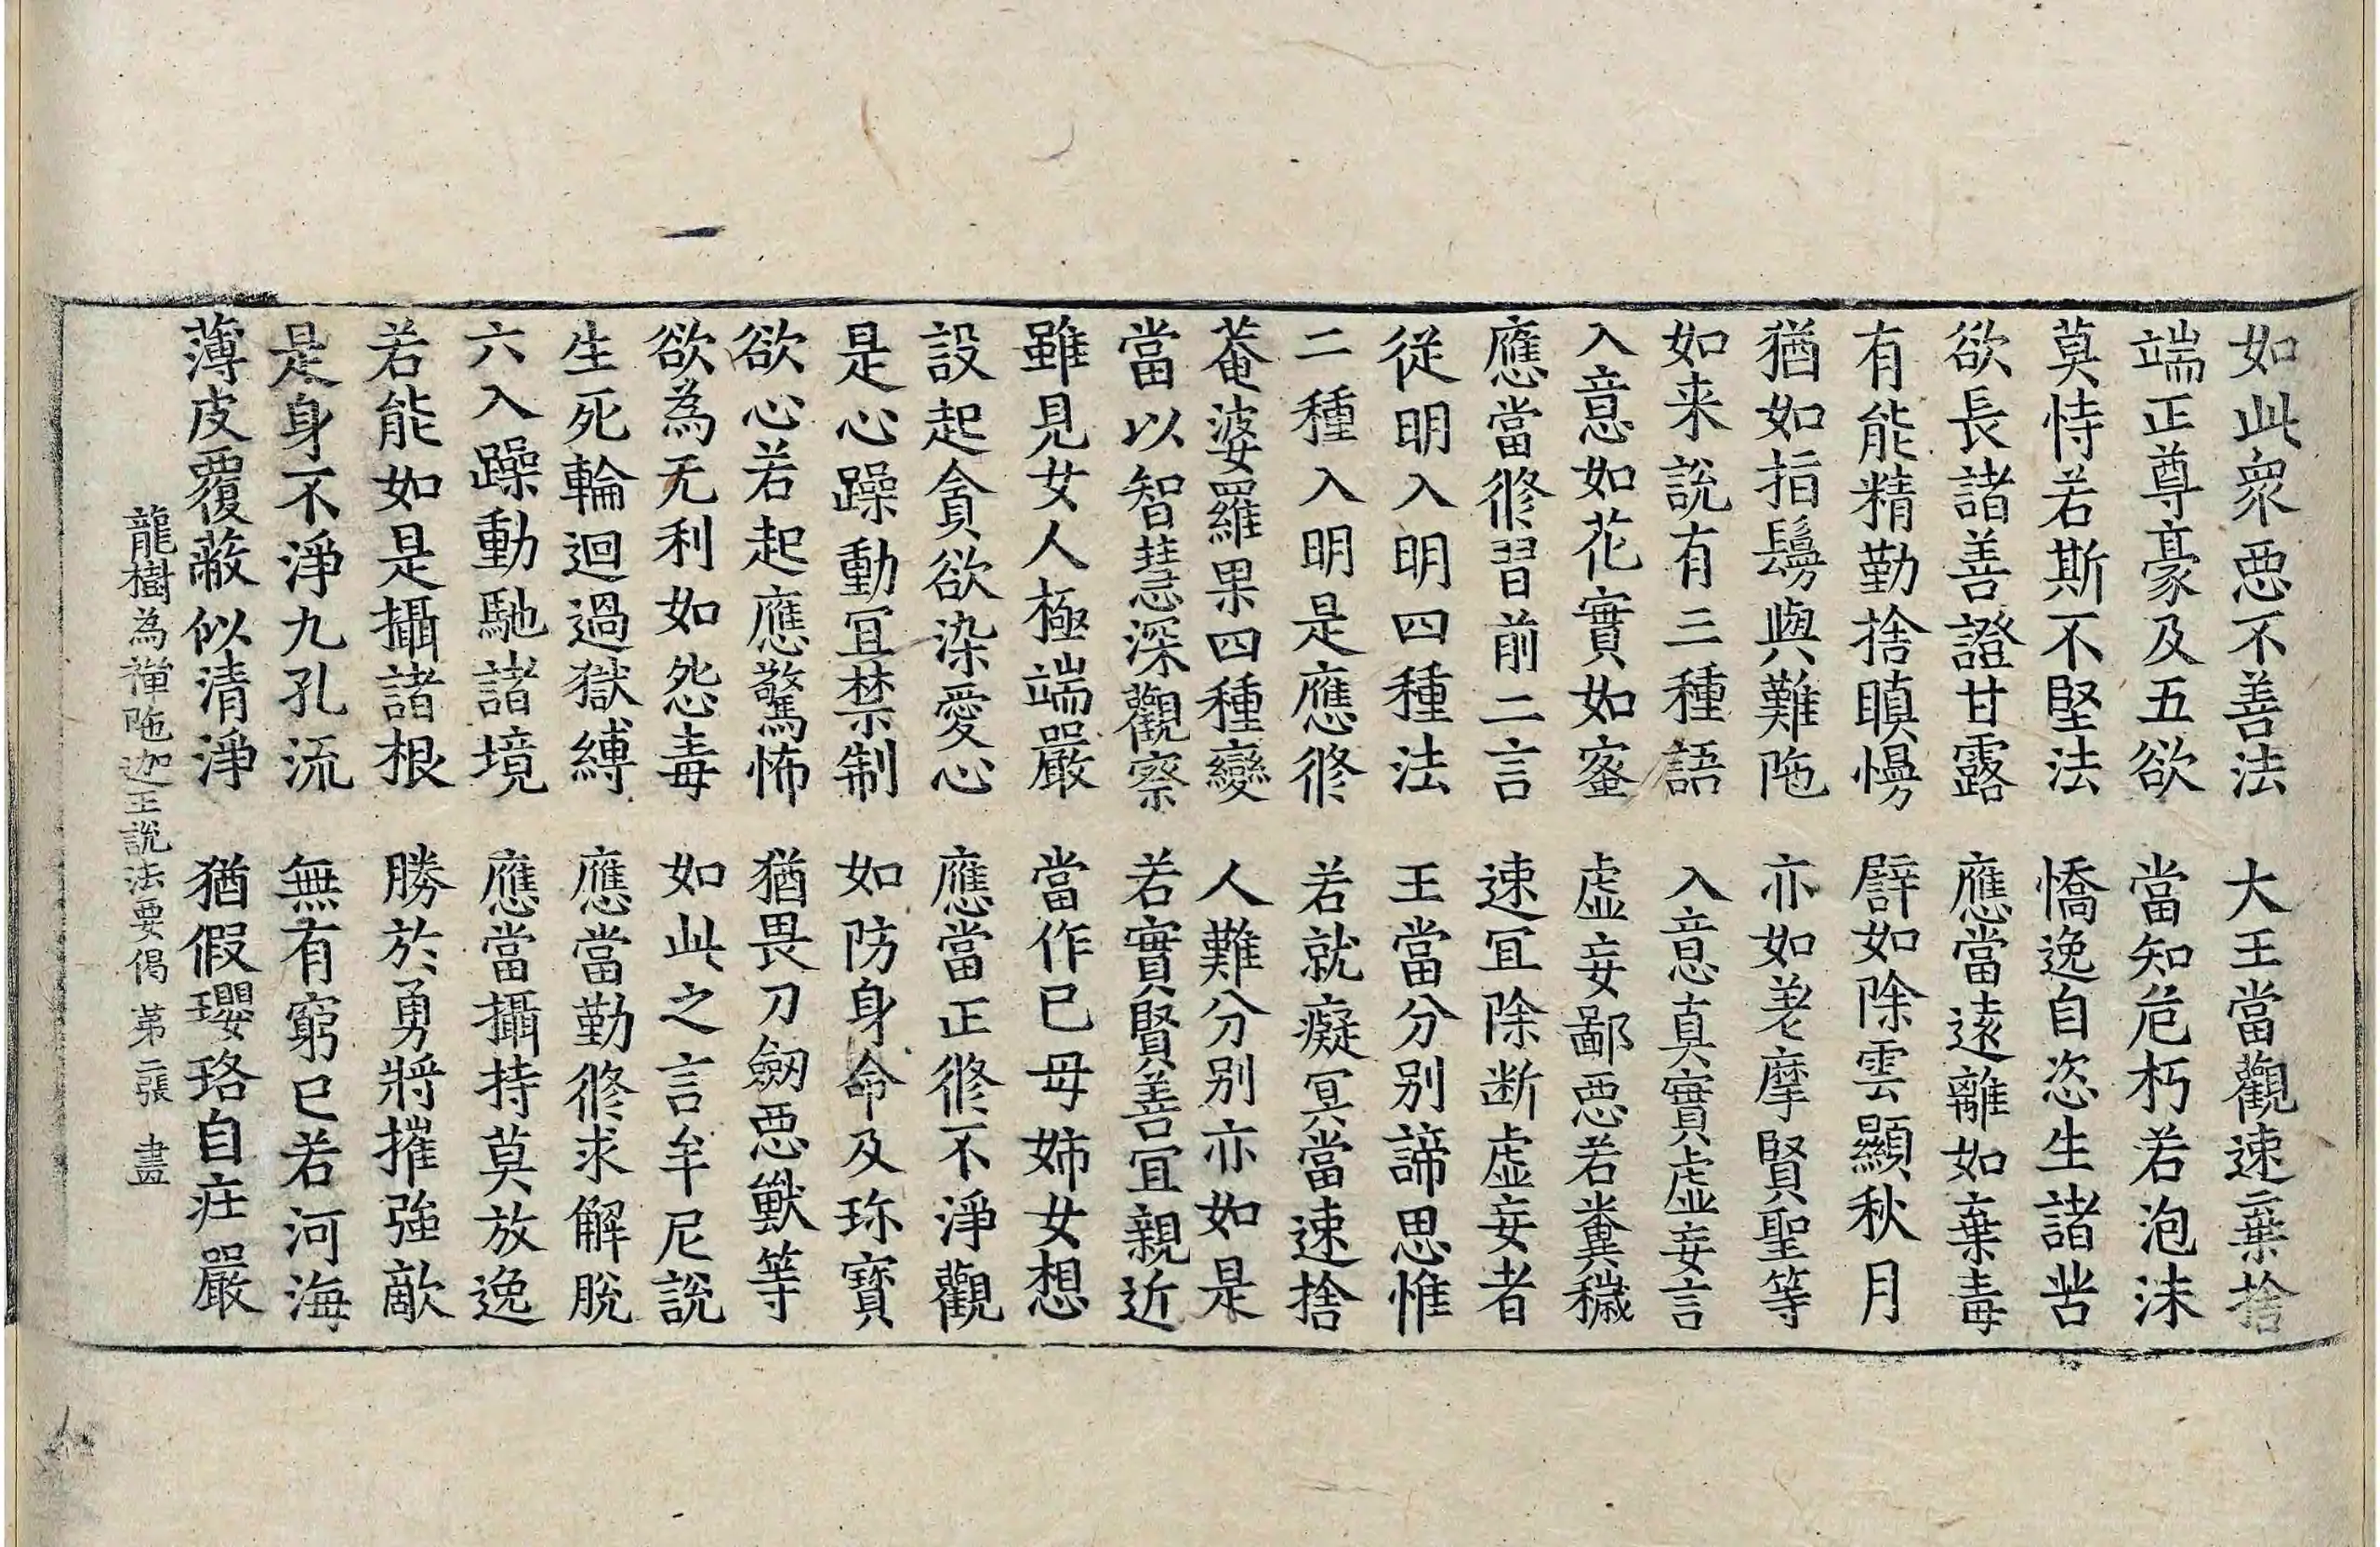 如此衆惡不善法　大王當觀速棄捨
端正尊豪及五欲　當知危朽若泡沫
莫恃若斯不堅法　憍逸自恣生諸苦
欲長諸善證甘露　應當遠離如棄毒
有能精勤捨瞋慢　譬如除雲顯秋月
猶如指鬘與難陁　亦如差摩賢聖等
如来說有三種語　入意真實虛妄言
入意如花實如蜜　虛妄鄙惡若糞穢
應當修習前二言　速冝除断虛妄者
從明入明四種法　王當分别諦思惟
二種入明是應修　若就癡冥當速捨
菴婆羅果四種變　人難分别亦如是
當以智慧深觀察　若實賢善冝親近
雖見女人極端嚴　當作已母姉女想
設起貪欲染愛心　應當正修不淨觀
是心躁動冝禁制　如防身命及珎寶
欲心若起應驚怖　猶畏刀劒惡獸等
欲為无利如怨毒　如此之言牟尼說
生死輪迴過獄縛　應當勤修求解脫
六入躁動馳諸境　應當攝持莫放逸
若能如是攝諸根　勝於勇將摧強敵
是身不淨九孔流　無有窮已若河海
薄皮覆蔽似清淨　猶假瓔珞自庄嚴
龍樹為禪陁迦王說法要偈　第二張　畫